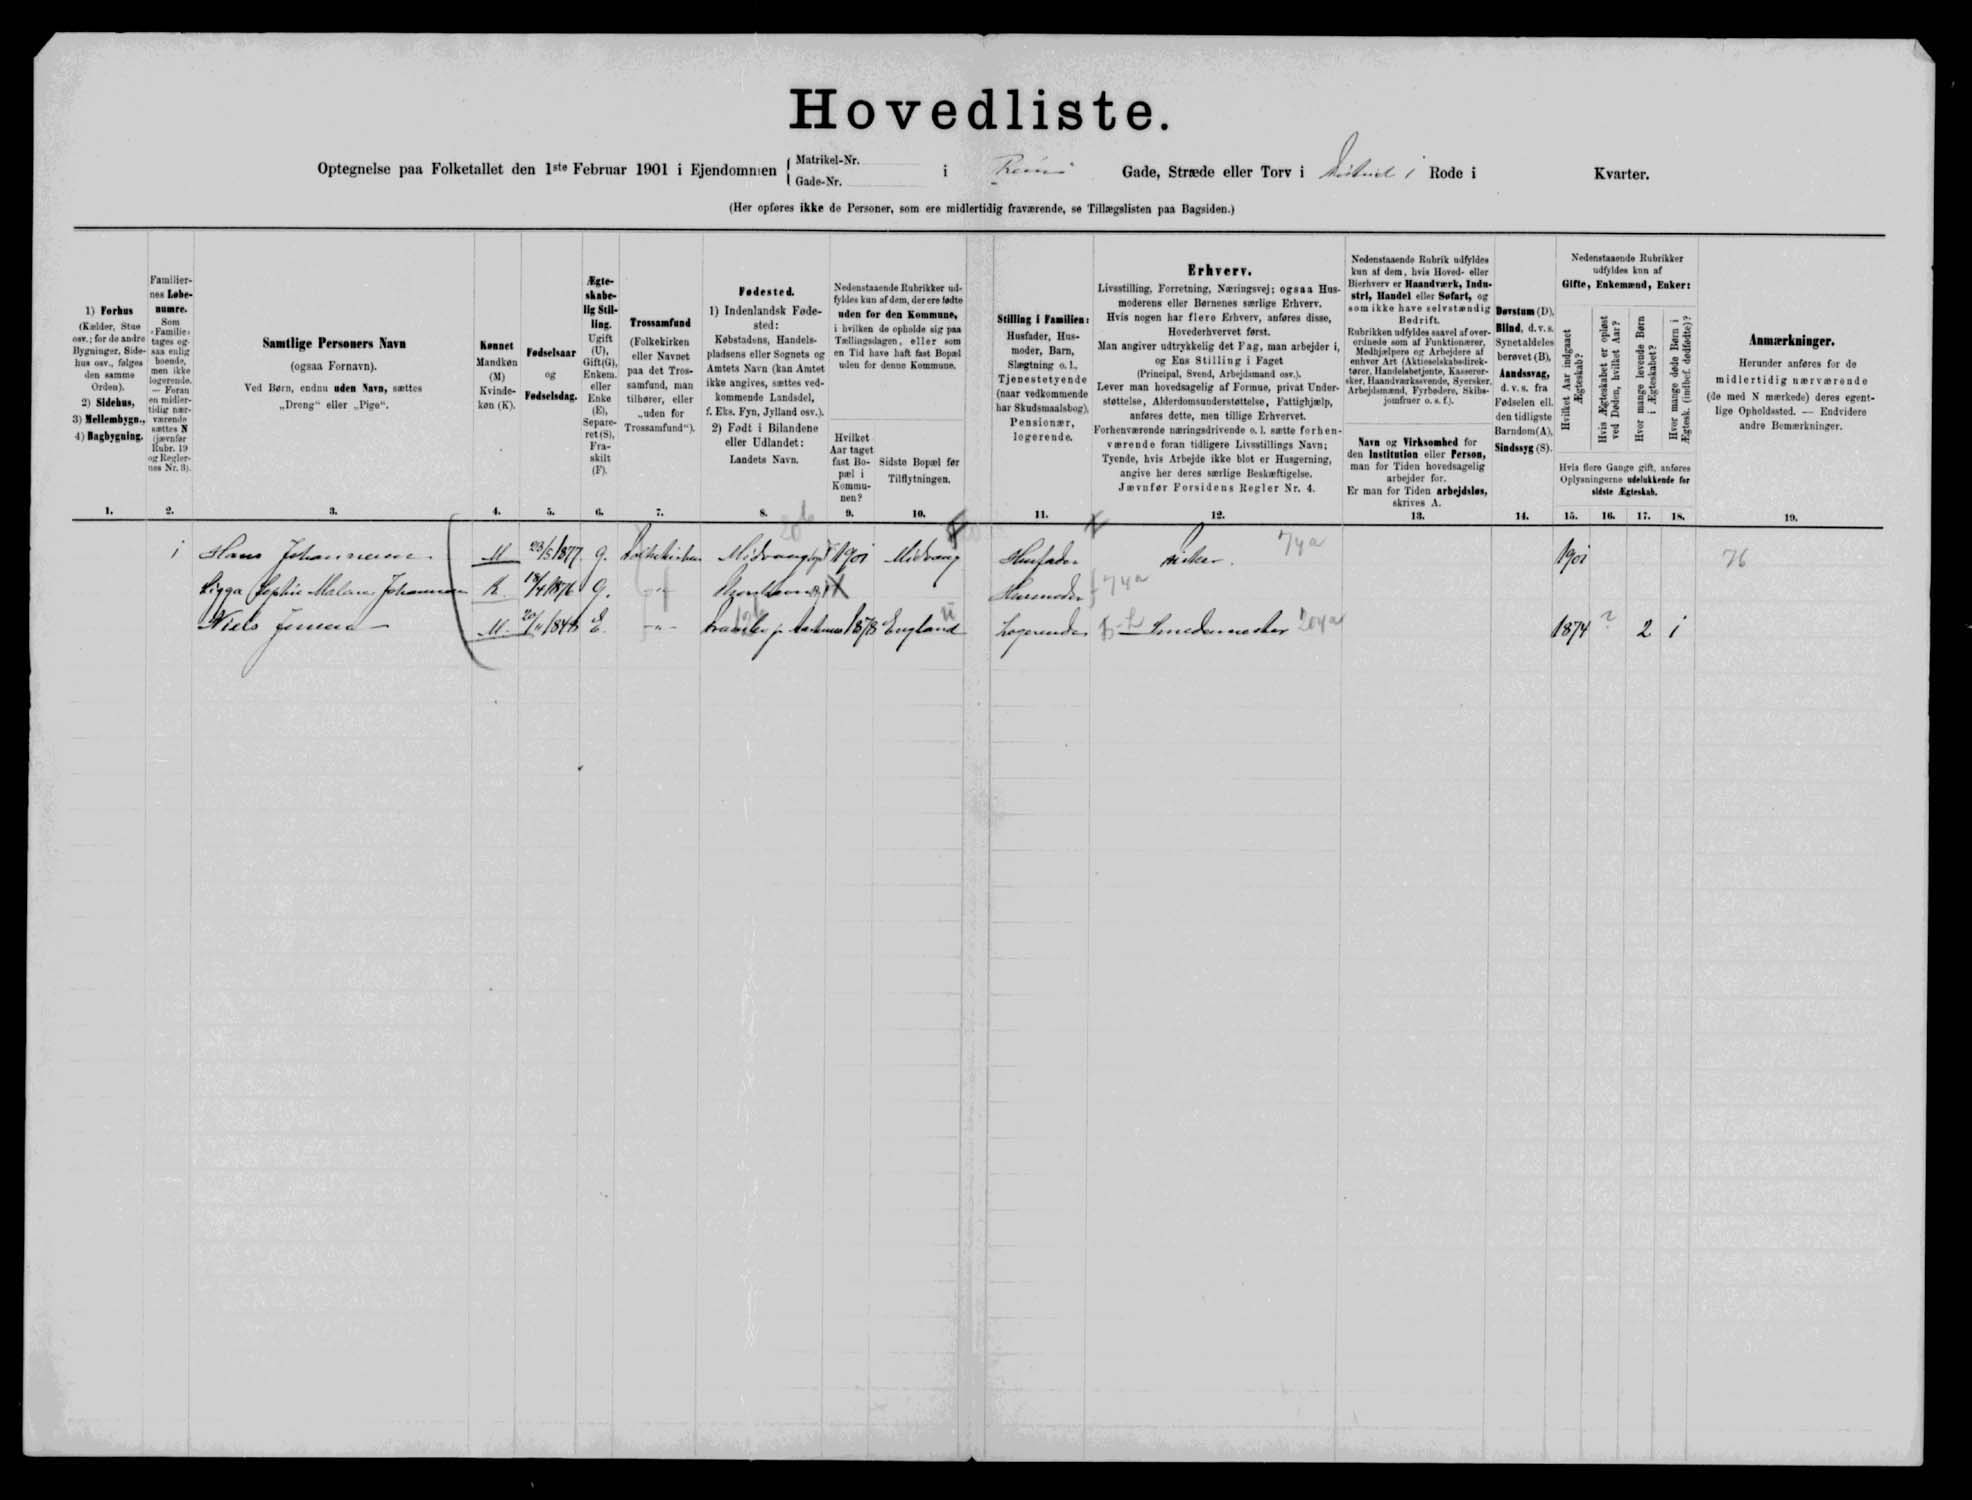 Hovedliste.
Optegnelse paa Folketallet den 1ste Februar 1901 i Ejendommen { Matrikel-Nr. Gade-Nr. i Gade, Stræde eller Torv i Rode i Kvarter.
(Her opføres ikke de Personer, som ere midlertidig fraværende, se Tillægslisten paa Bagsiden.)
1) Forhus
(Kælder, Stue
osv.; for de andre
Bygninger, Side-
hus osv., følges
den samme
Orden).
2) Sidehus,
3) Mellembygn.,
4) Bagbygning.
Familier-
nes Løbe-
numre.
Som
»Familie«
tages og-
saa enlig
boende,
men ikke
logerende.
— Foran
en midler-
tidig nær-
værende
sættes N
(jævnfør
Rubr. 19
og Regler-
nes Nr. 3).
Samtlige Personers Navn
(ogsaa Fornavn).
Ved Børn, endnu uden Navn, sættes
„Dreng“ eller „Pige“.
Kønnet
Mandkøn
(M)
Kvinde-
køn (K).
Fødselsaar
og
Fødselsdag.
Ægte-
skabe-
lig Stil-
ling.
Ugift
(U),
Gift(G),
Enkem.
eller
Enke
(E),
Separe-
ret (S),
Fra-
skilt
(F).
Trossamfund
(Folkekirken
eller Navnet
paa det Tros-
samfund, man
tilhører, eller
„uden for
Trossamfund“).
Fødested.
1) Indenlandsk Føde-
sted:
Købstadens, Handels-
pladsens eller Sognets og
Amtets Navn (kan Amtet
ikke angives, sættes ved-
kommende Landsdel,
f. Eks. Fyn, Jylland osv.).
2) Født i Bilandene
eller Udlandet:
Landets Navn.
Nedenstaaende Rubrikker ud-
fyldes kun af dem, der ere fødte
uden for den Kommune,
i hvilken de opholde sig paa
Tællingsdagen, eller som
en Tid have haft fast Bopæl
uden for denne Kommune.
Hvilket
Aar taget
fast Bo-
pæl i
Kommu-
nen?
Sidste Bopæl før
Tilflytningen.
Stilling i Familien:
Husfader, Hus-
moder, Barn,
Slægtning o. l.,
Tjenestetyende
(naar vedkommende
har Skudsmaalsbog),
Pensionær,
logerende.
Erhverv.
Livsstilling, Forretning, Næringsvej; ogsaa Hus-
moderens eller Børnenes særlige Erhverv.
Hvis nogen har flere Erhverv, anføres disse,
Hovederhvervet først.
Man angiver udtrykkelig det Fag, man arbejder i,
og Ens Stilling i Faget
(Principal, Svend, Arbejdsmand osv.).
Lever man hovedsagelig af Formue, privat Under-
støttelse, Alderdomsunderstøttelse, Fattighjælp,
anføres dette, men tillige Erhvervet.
Forhenværende næringsdrivende o. l. sætte forhen-
værende foran tidligere Livsstillings Navn;
Tyende, hvis Arbejde ikke blot er Husgerning,
angive her deres særlige Beskæftigelse.
Jævnfør Forsidens Regler Nr. 4.
Nedenstaaende Rubrik udfyldes
kun af dem, hvis Hoved- eller
Bierhverv er Haandværk, Indu-
stri, Handel eller Søfart, og
som ikke have selvstændig
Bedrift.
Rubrikken udfyldes saavel af over-
ordnede som af Funktionærer,
Medhjælpere og Arbejdere af
enhver Art (Aktieselskabsdirek-
tører, Handelsbetjente, Kasserer-
sker, Haandværkssvende, Syersker,
Arbejdsmænd, Fyrbødere, Skibs-
jomfruer o. s. f.).
Navn og Virksomhed for
den Institution eller Person,
man for Tiden hovedsagelig
arbejder for.
Er man for Tiden arbejdsløs,
skrives A.
Døvstum (D),
Blind, d. v. s.
Synet aldeles
berøvet (B),
Aandssvag,
d. v. s. fra
Fødselen ell.
den tidligste
Barndom(A),
Sindssyg (S).
Nedenstaaende Rubrikker
udfyldes kun af
Gifte, Enkemænd, Enker:
Hvilket Aar indgaaet
Ægteskab?
Hvis Ægteskabet er opløst
ved Døden, hvilket Aar?
Hvor mange levende Børn
i Ægteskabet?
Hvor mange døde Børn i
Ægtesk. (indbef. dødfødte)?
Hvis flere Gange gift, anføres
Oplysningerne udelukkende for
sidste Ægteskab.
Anmærkninger.
Herunder anføres for de
midlertidig nærværende
(de med N mærkede) deres egent-
lige Opholdssted. — Endvidere
andre Bemærkninger.
1. 2. 3. 4. 5. 6. 7. 8. 9. 10. 11. 12. 13. 14. 15. 16. 17. 18. 19.
1 Hans Johannesen M 23/5 1877 G. Folkekirken 1901 Midvaag Husfader Fisker. 74a 1901 76
Sigga Sophie Malene Johannesen K. 18/4 1876 G. -„- Husmoder } 74a
Niels Jensen M. 1848 E. -„- 1878 England Logerende Smedemester 204a 1874 ? 2 1